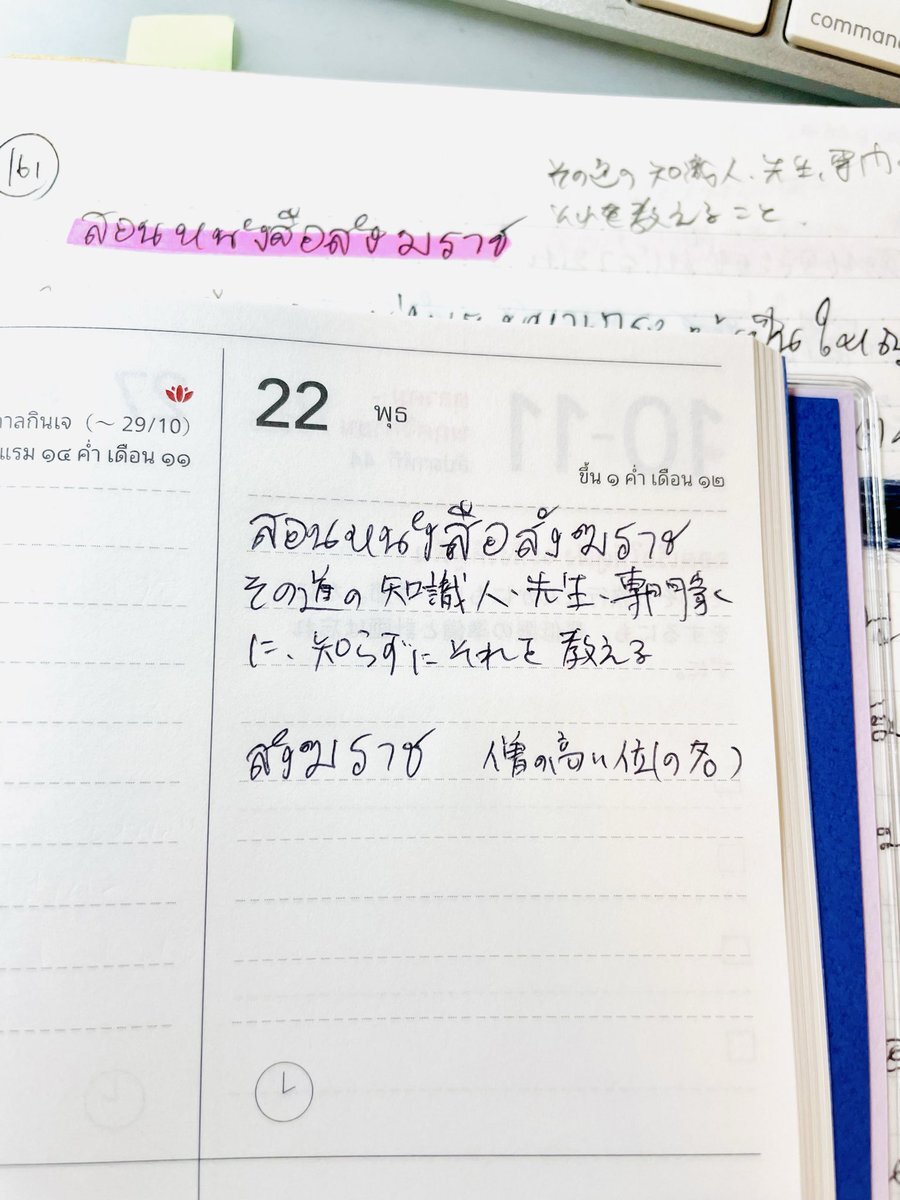 command
161
その道の知識人、先生、専門
を教えること.
สอนหนังสือสังฆราช
เป็น
าลกินเจ (～ 29/10)
แรม ๑๔ ค่ำ เดือน ๑๑
22 พุธ
ขึ้น ๑ ค่ำ เดือน ๑๒
สอนหนังสือสังฆราช
その道の知識人、先生、専門家
に、知らずにそれを教える
สังฆราช 僧の高い位(の名)